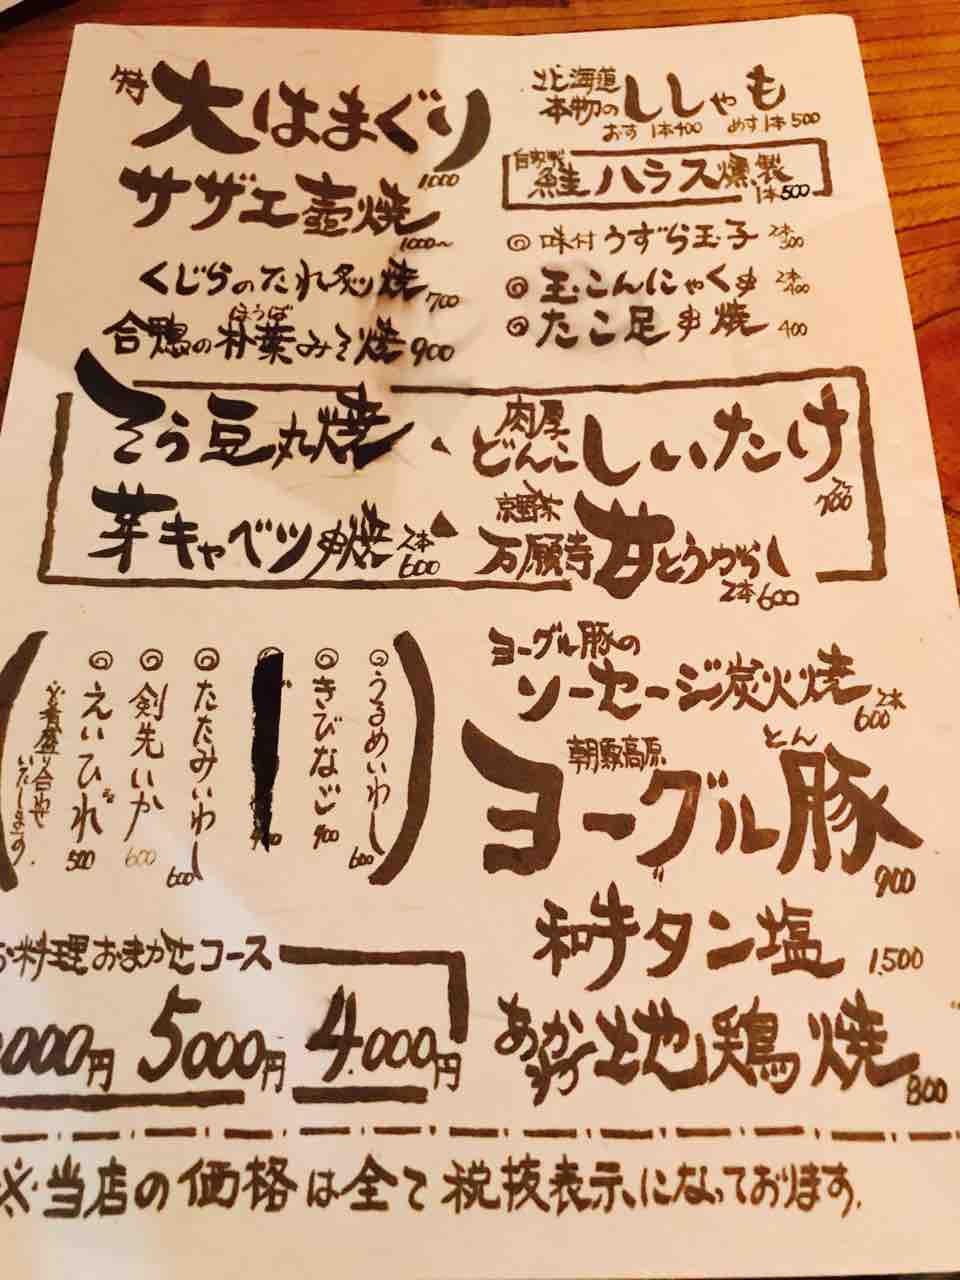 特大はまぐり
1000
サザエ壺焼
1000~
くじらのたれ炙り焼
700
ほうば
合鴨の朴葉みそ焼 900
北海道
本物のししゃも
おす 1本400 めす1本500
自家製
鮭ハラス燻製
1本500
◎味付うずら玉子 2本300
◎玉こんにゃく串 2本400
◎たこ足串焼 400
そら豆丸焼
肉厚
どんこしいたけ
700
芽キャベツ串焼 2本600
京野菜
万願寺甘とうがらし
2本600
◎うるめいわし 600
◎きびなご 900
◎たたみいわし 600
◎剣先いか 600
◎えいひれ 500
いたします。
ヨーグル豚の
ソーセージ炭火焼
2本600
朝霧高原
とん
ヨーグル豚
900
和牛タン塩 1,500
あかどり地鶏焼
800
お料理おまかせコース
000円 5000円 4.000円
※当店の価格は全て税抜表示になっております。